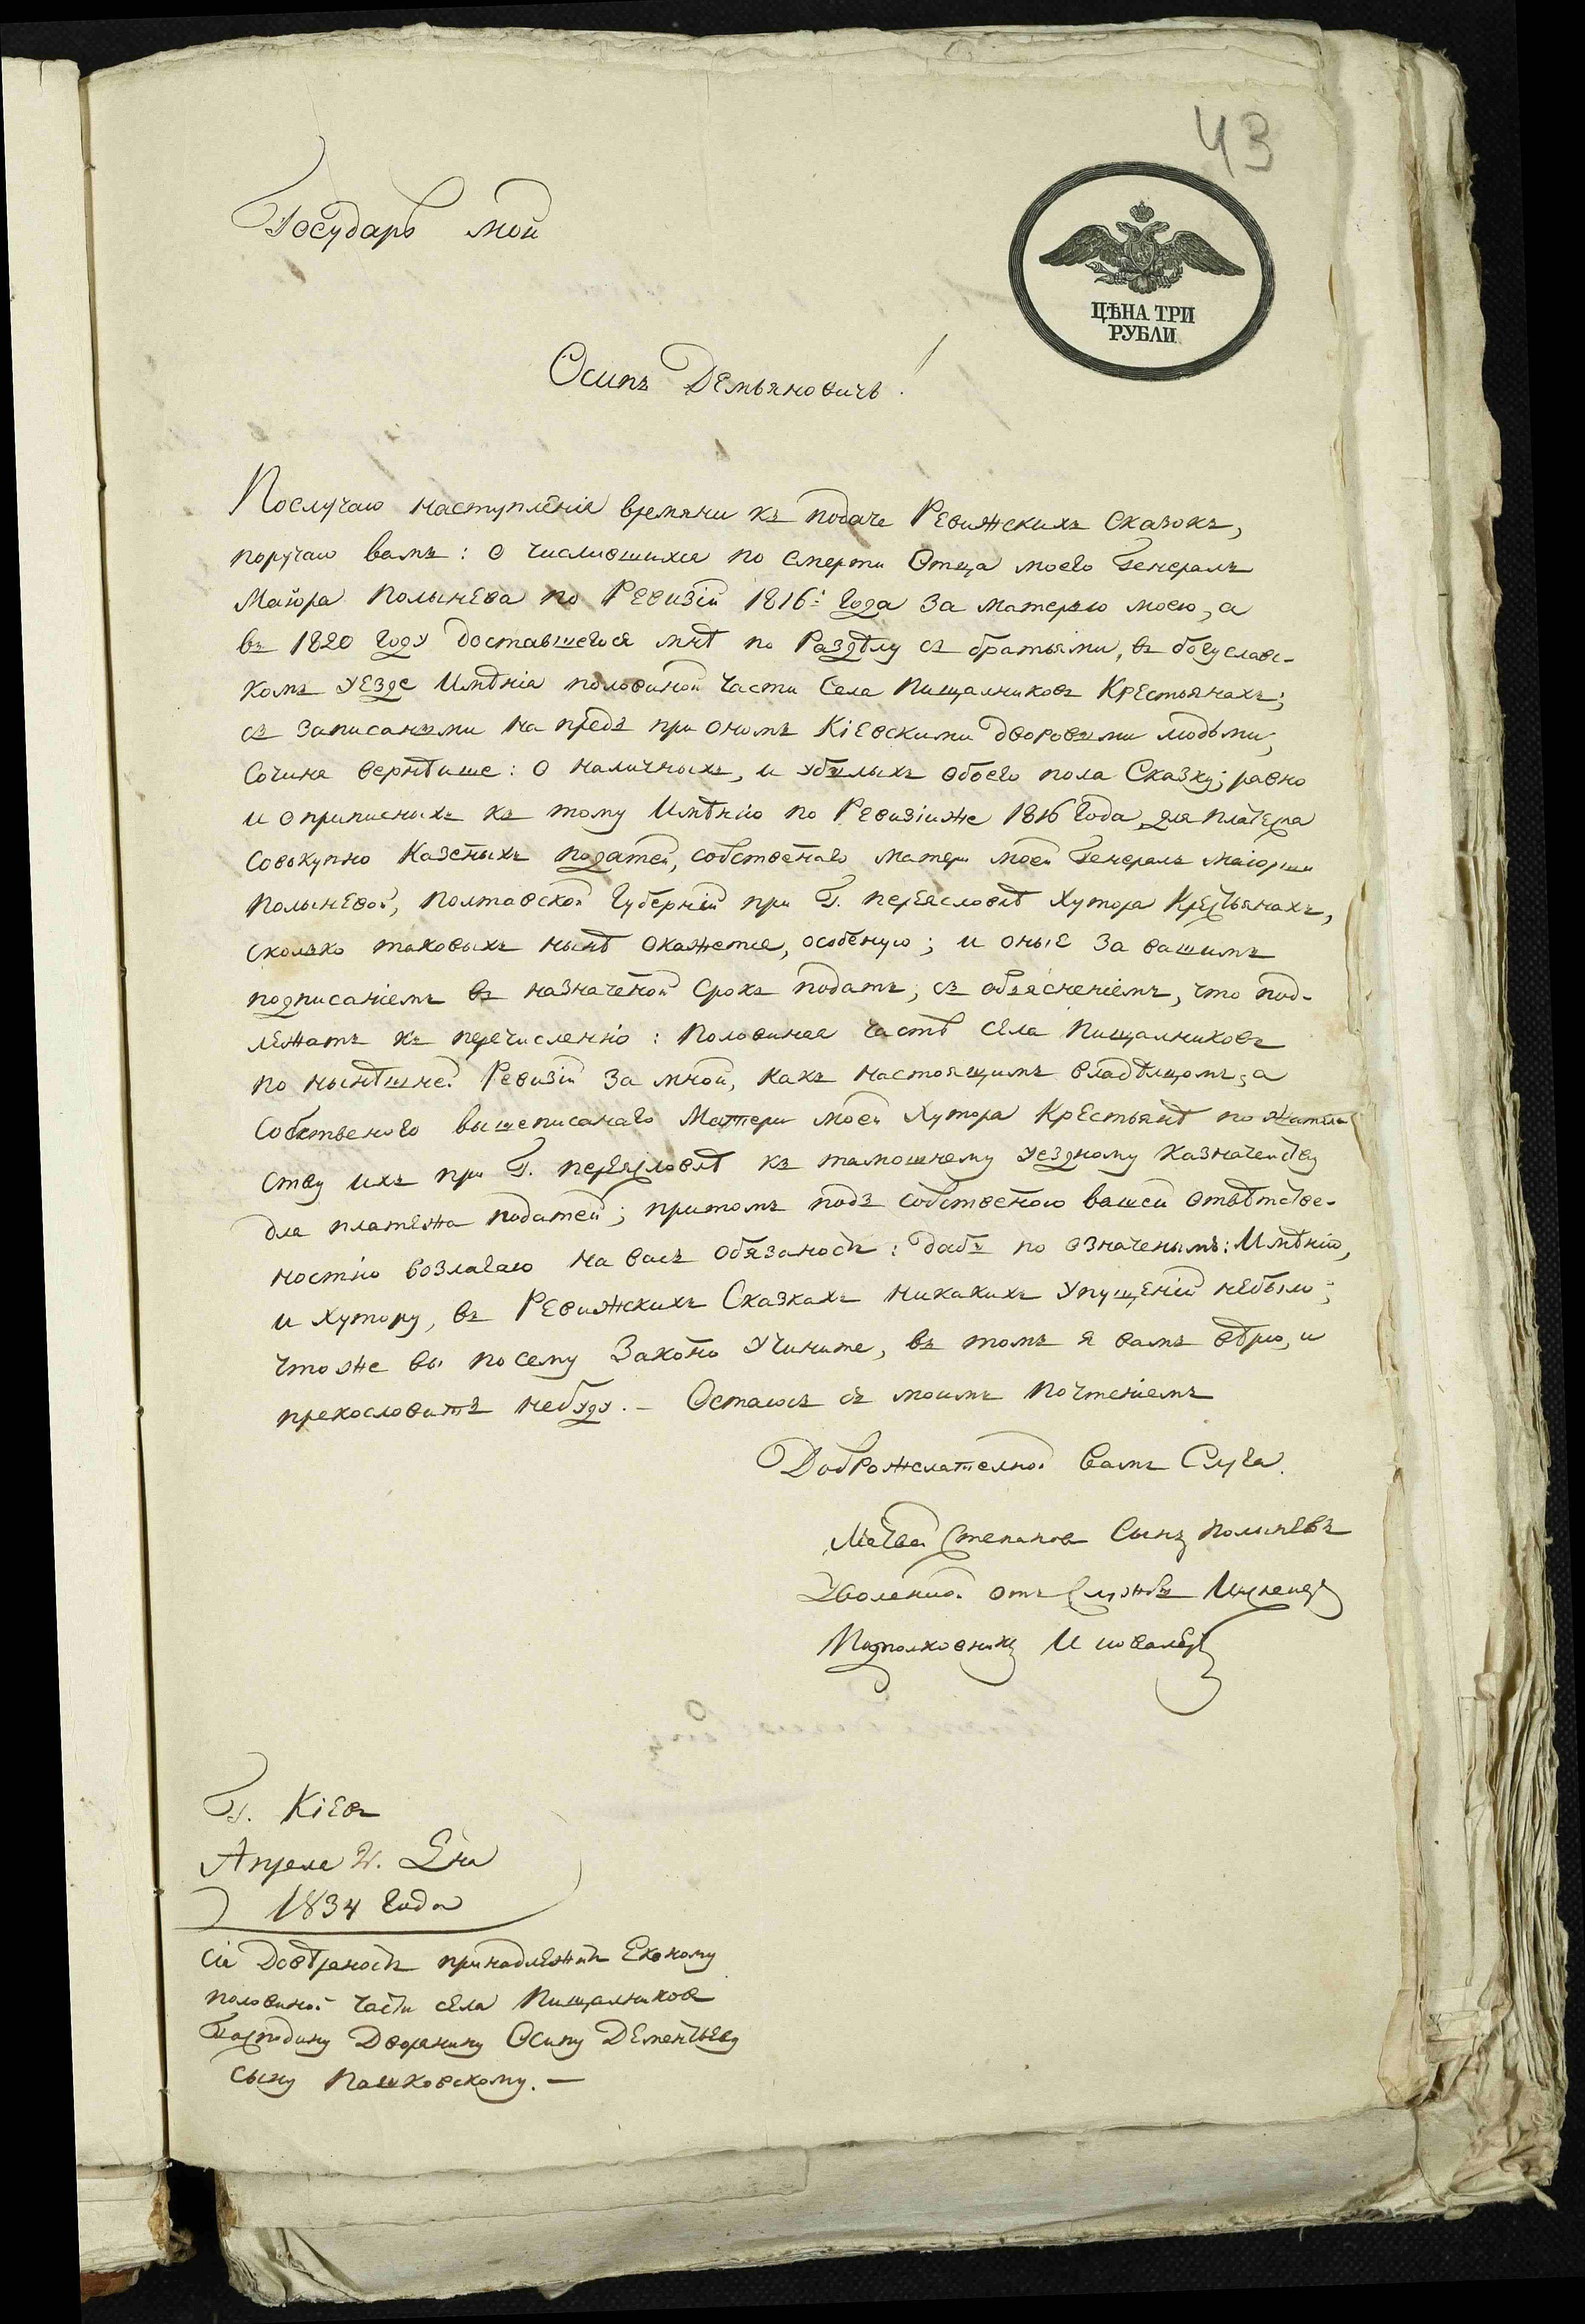 43
ЦѢНА ТРИ
РУБЛИ
Государь мой
Осипъ Демьяновичъ!
Послучаю наступленія времяни къ подаче Ревижскихъ Сказокъ,
поручаю вамъ: о числившихся по смерти Отца моего Генералъ
Маіора Полынева по Ревизіи 1816: года за матерью моею, а
въ 1820 году доставшегося мнѣ по Раздѣлу съ братьями, въ богуславс-
комъ уезде Имѣнія половиной части Села Пищалниковъ Крестьянахъ;
съ записаными на предъ при ономъ Кіевскими дворовыми людьми,
Сочиня вернѣише: о наличныхъ, и убылыхъ обоего пола Сказку; равно
и о приписныхъ къ тому Имѣнію по Ревизіи же 1816 года, для платежа
совокупно Казеныхъ податей, собственаго матери моей Генералъ маіорши
Полыневой, Полтавской Губерніи при Г. переясловлѣ Хутора Крестьянахъ,
сколько таковыхъ нынѣ окажется, особеную; и оные за вашимъ
подписаніемъ въ назначеной срокъ подать, съ объясненіемъ, что под-
лежатъ къ перечисленію: Половиная часть села Пищалниковъ
по нынѣшней Ревизіи за мной, какъ настоящимъ владѣлцомъ, а
Собственого вышеписанаго Матери моей Хутора Крестьянѣ по жител
ству ихъ при Г. переясловлѣ къ тамошнему уездному казначейству
для платежа податей; притомъ подъ собственою вашей отвѣтстве-
ностію возлагаю на васъ обязаность: дабы по означенымъ: Имѣнію,
и Хутору, въ Ревижскихъ Сказкахъ никакихъ упущеній небыло;
что же вы посему Законо Учините, въ томъ я вамъ вѣрю, и
прекословить небуду. — Остаюсь съ моимъ почтеніемъ
Доброжелателной вамъ Слуга.
Матвей Степановъ Сынъ Полыневъ
Уволеной отъ Службы Инженеръ
Подполковникъ И кавалеръ
Г. Кіевъ
Апреля 2. Дня
1834 года
сія Довѣреность принадлежитъ Економу
половиной части села Пищалниковъ
Господину Дворянину Осипу Дементьеву
сыну Пашковскому. —